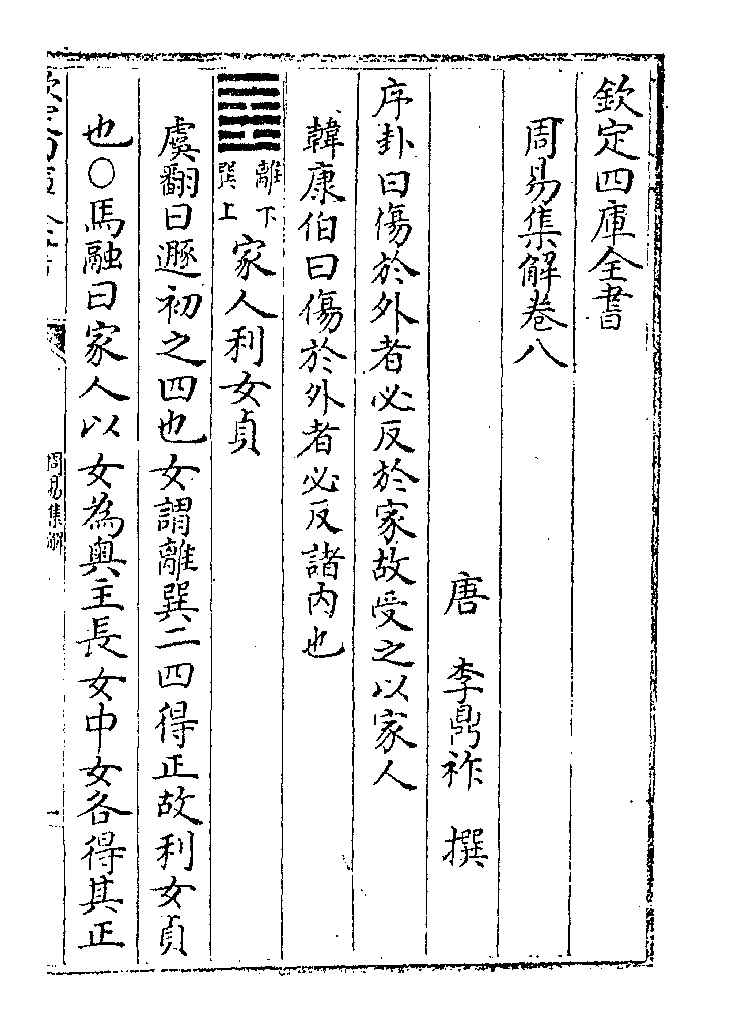 欽定四庫全書
周易集解卷八
唐 李鼎祚 撰
序卦曰傷於外者必反於家故受之以家人
韓康伯曰傷於外者必反諸内也
離下
巽上
家人利女貞
虞翻曰遯初之四也女謂離巽二四得正故利女貞
也○馬融曰家人以女為奥主長女中女各得其正
周易集解
一